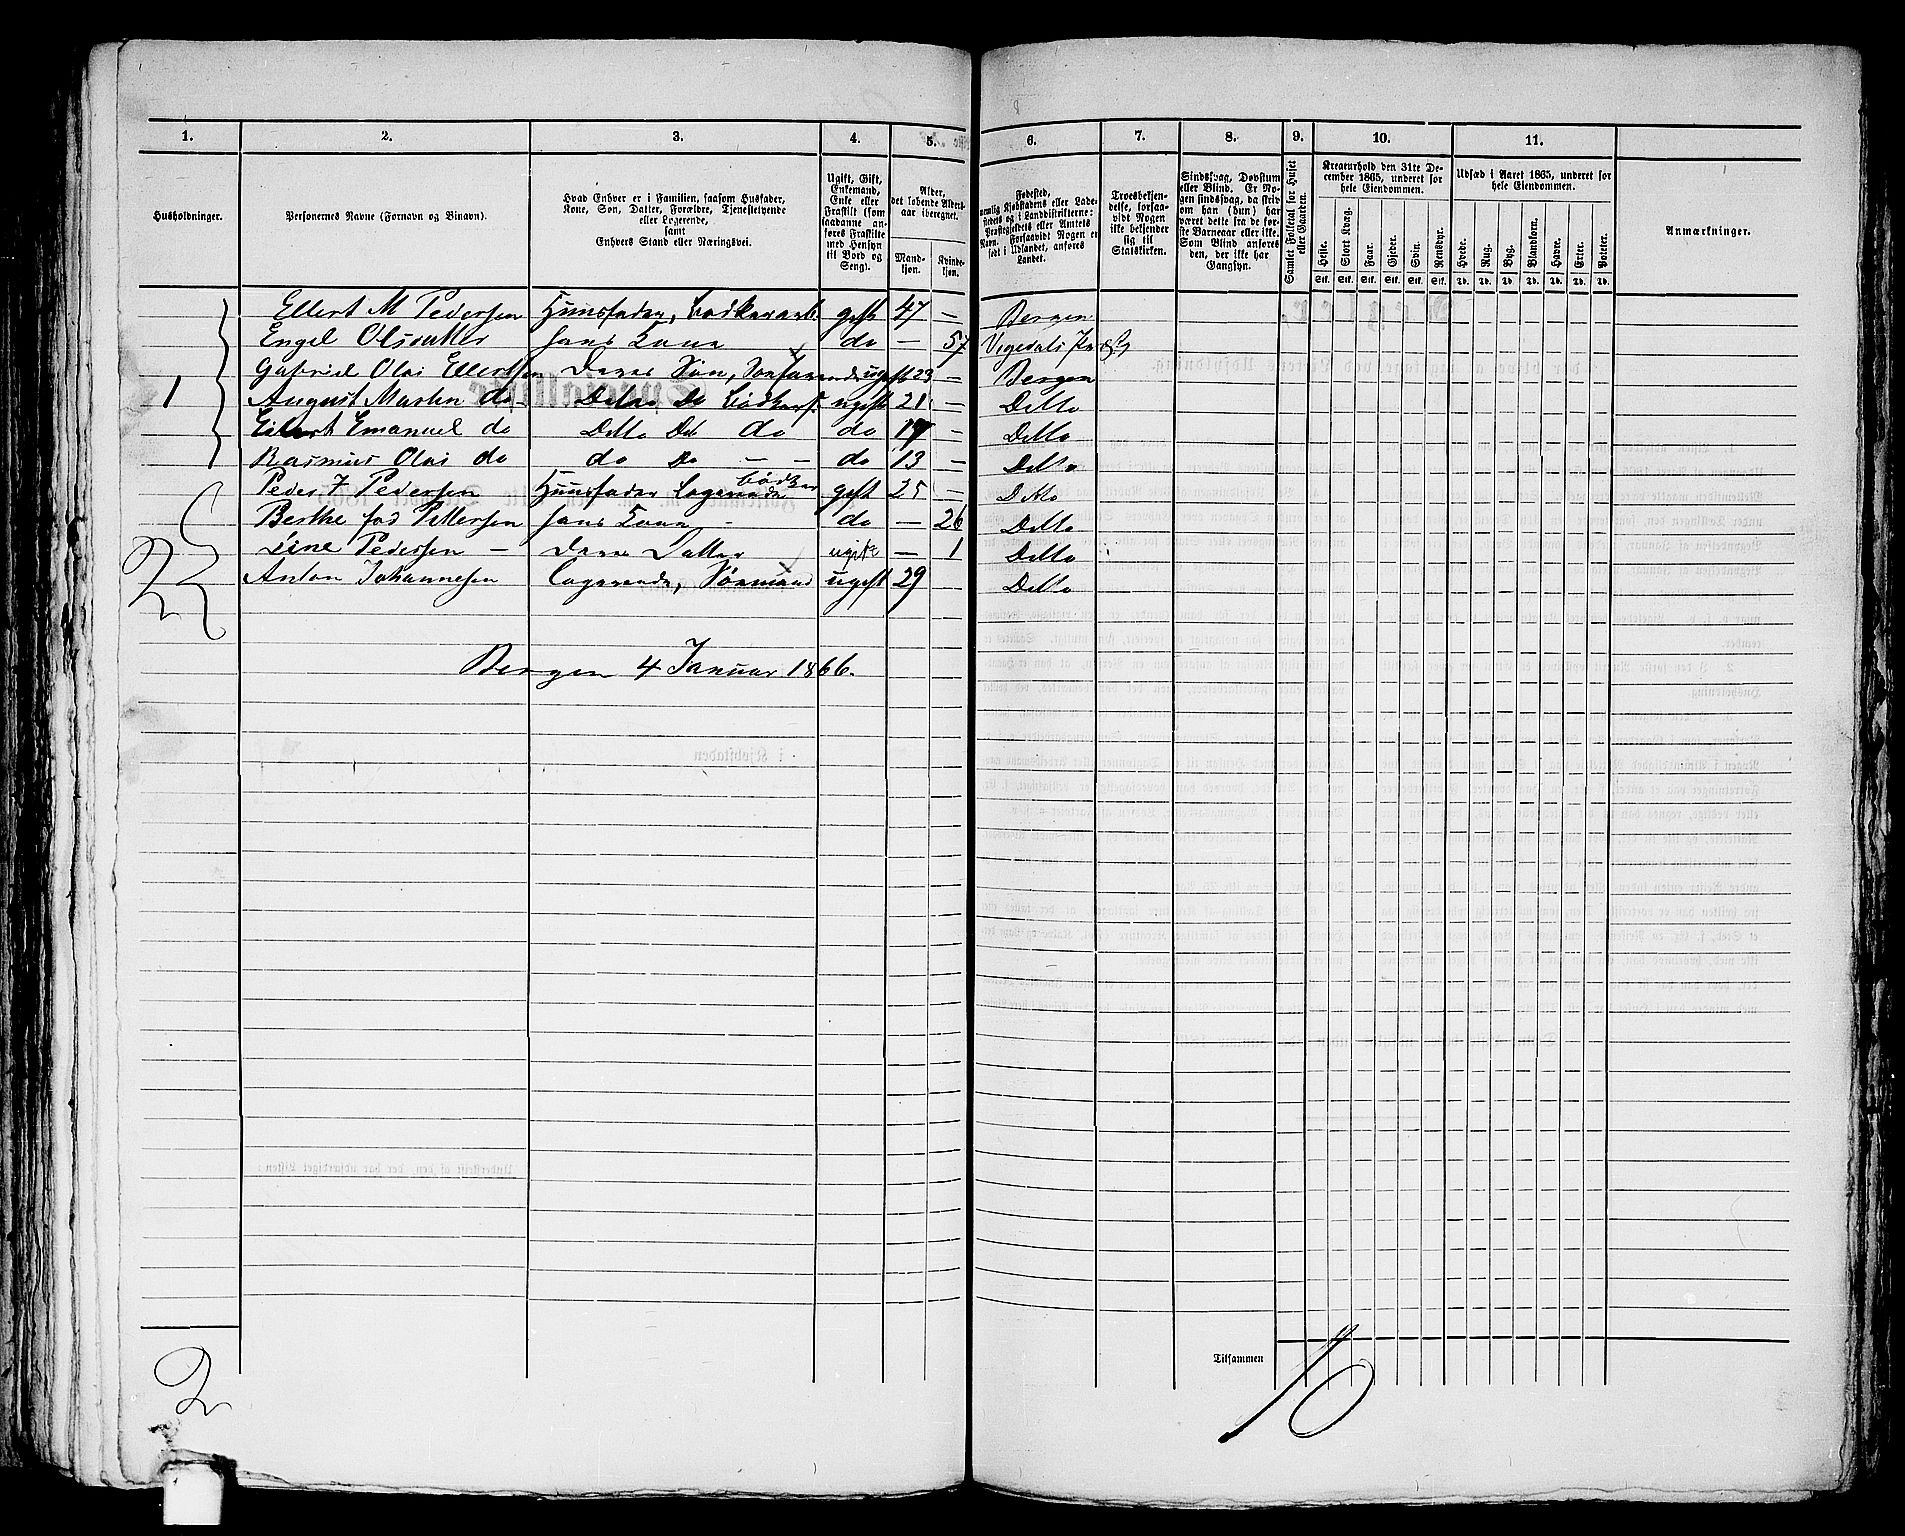 1. 2. 3. 4. 5. 6. 7. 8. 9. 10. 11.
Husholdninger.
Personernes Navne (Fornavn og Binavn).
Hvad Enhver er i Familien, saasom Husfader,
Kone, Søn, Datter, Forældre, Tjenestetyende
eller Logerende,
samt
Enhvers Stand eller Næringsvei.
Ugift, Gift,
Enkemand,
Enke eller
Fraskilt (som
saadanne an-
føres Fraskilte
med Hensyn
til Bord og
Seng).
Alder,
det løbende Alders-
aar iberegnet.
Mand-
kjøn.
Kvinde-
kjøn.
Fødested,
nemlig Kjøbstadens eller Lade-
stedets og i Landdistrikterne:
Præstegjeldets eller Amtets
Navn. Forsaavidt Nogen er
født i Udlandet, anføres
Landet.
Troesbekjen-
delse, forsaa-
vidt Nogen
ikke bekjender
sig til
Statskirken.
Sindssvag, Døvstum
eller Blind. Er No-
gen sindssvag, da skriv
om han (hun) har
været dette fra de før-
ste Barneaar eller ikke.
Som Blind anføres
den, der ikke har
Gangsyn.
Samlet Folketal for Huset
eller Gaarden.
Kreaturhold den 31te De-
cember 1865, underet for
hele Eiendommen.
Heste. Stort Kvæg. Faar. Gjeder. Svin. Rensdyr.
Stk. Stk. Stk. Stk. Stk. Stk.
Udsæd i Aaret 1865, underet for
hele Eiendommen.
Hvede. Rug. Byg. Blandkorn. Havre. Erter. Poteter.
Td. Td. Td. Td. Td. Td. Td.
Anmærkninger.
Ellert M Pedersen Huusfader, Bødkerarb. gift 47 — Bergen
Engel Olsdatter Hans Kone do — 57
Gabriel Olai Ellertsen Deres Søn, ugift 23 — Bergen
1 August Martin do Detto Do ugift 21 — Detto
Eilert Emanuel do Detto Do do do — Detto
Rasmus Olai do do Do — — do 13 — Detto
Peder J Pedersen Huusfader Logerende Bødker gift 25 — Ditto
Berthe Pettersen Hans Kone - do — 26 Detto
Line Pedersen — Deres Datter ugift — 1 Detto
Anton Johannesen Logerende, Sømand ugift 29 Detto
Bergen 4 Januar 1866.
Tilsammen 10
2